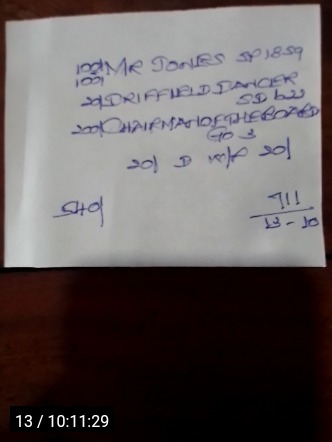 100/ MR JONES SP 1859
100/
20/ DRIFFIELD DANCER
SD 622
200/ CHAIRMAN OF THE BOARD
GO 3
20/ D W/P 20/
540/
711
13-10
13 / 10:11:29